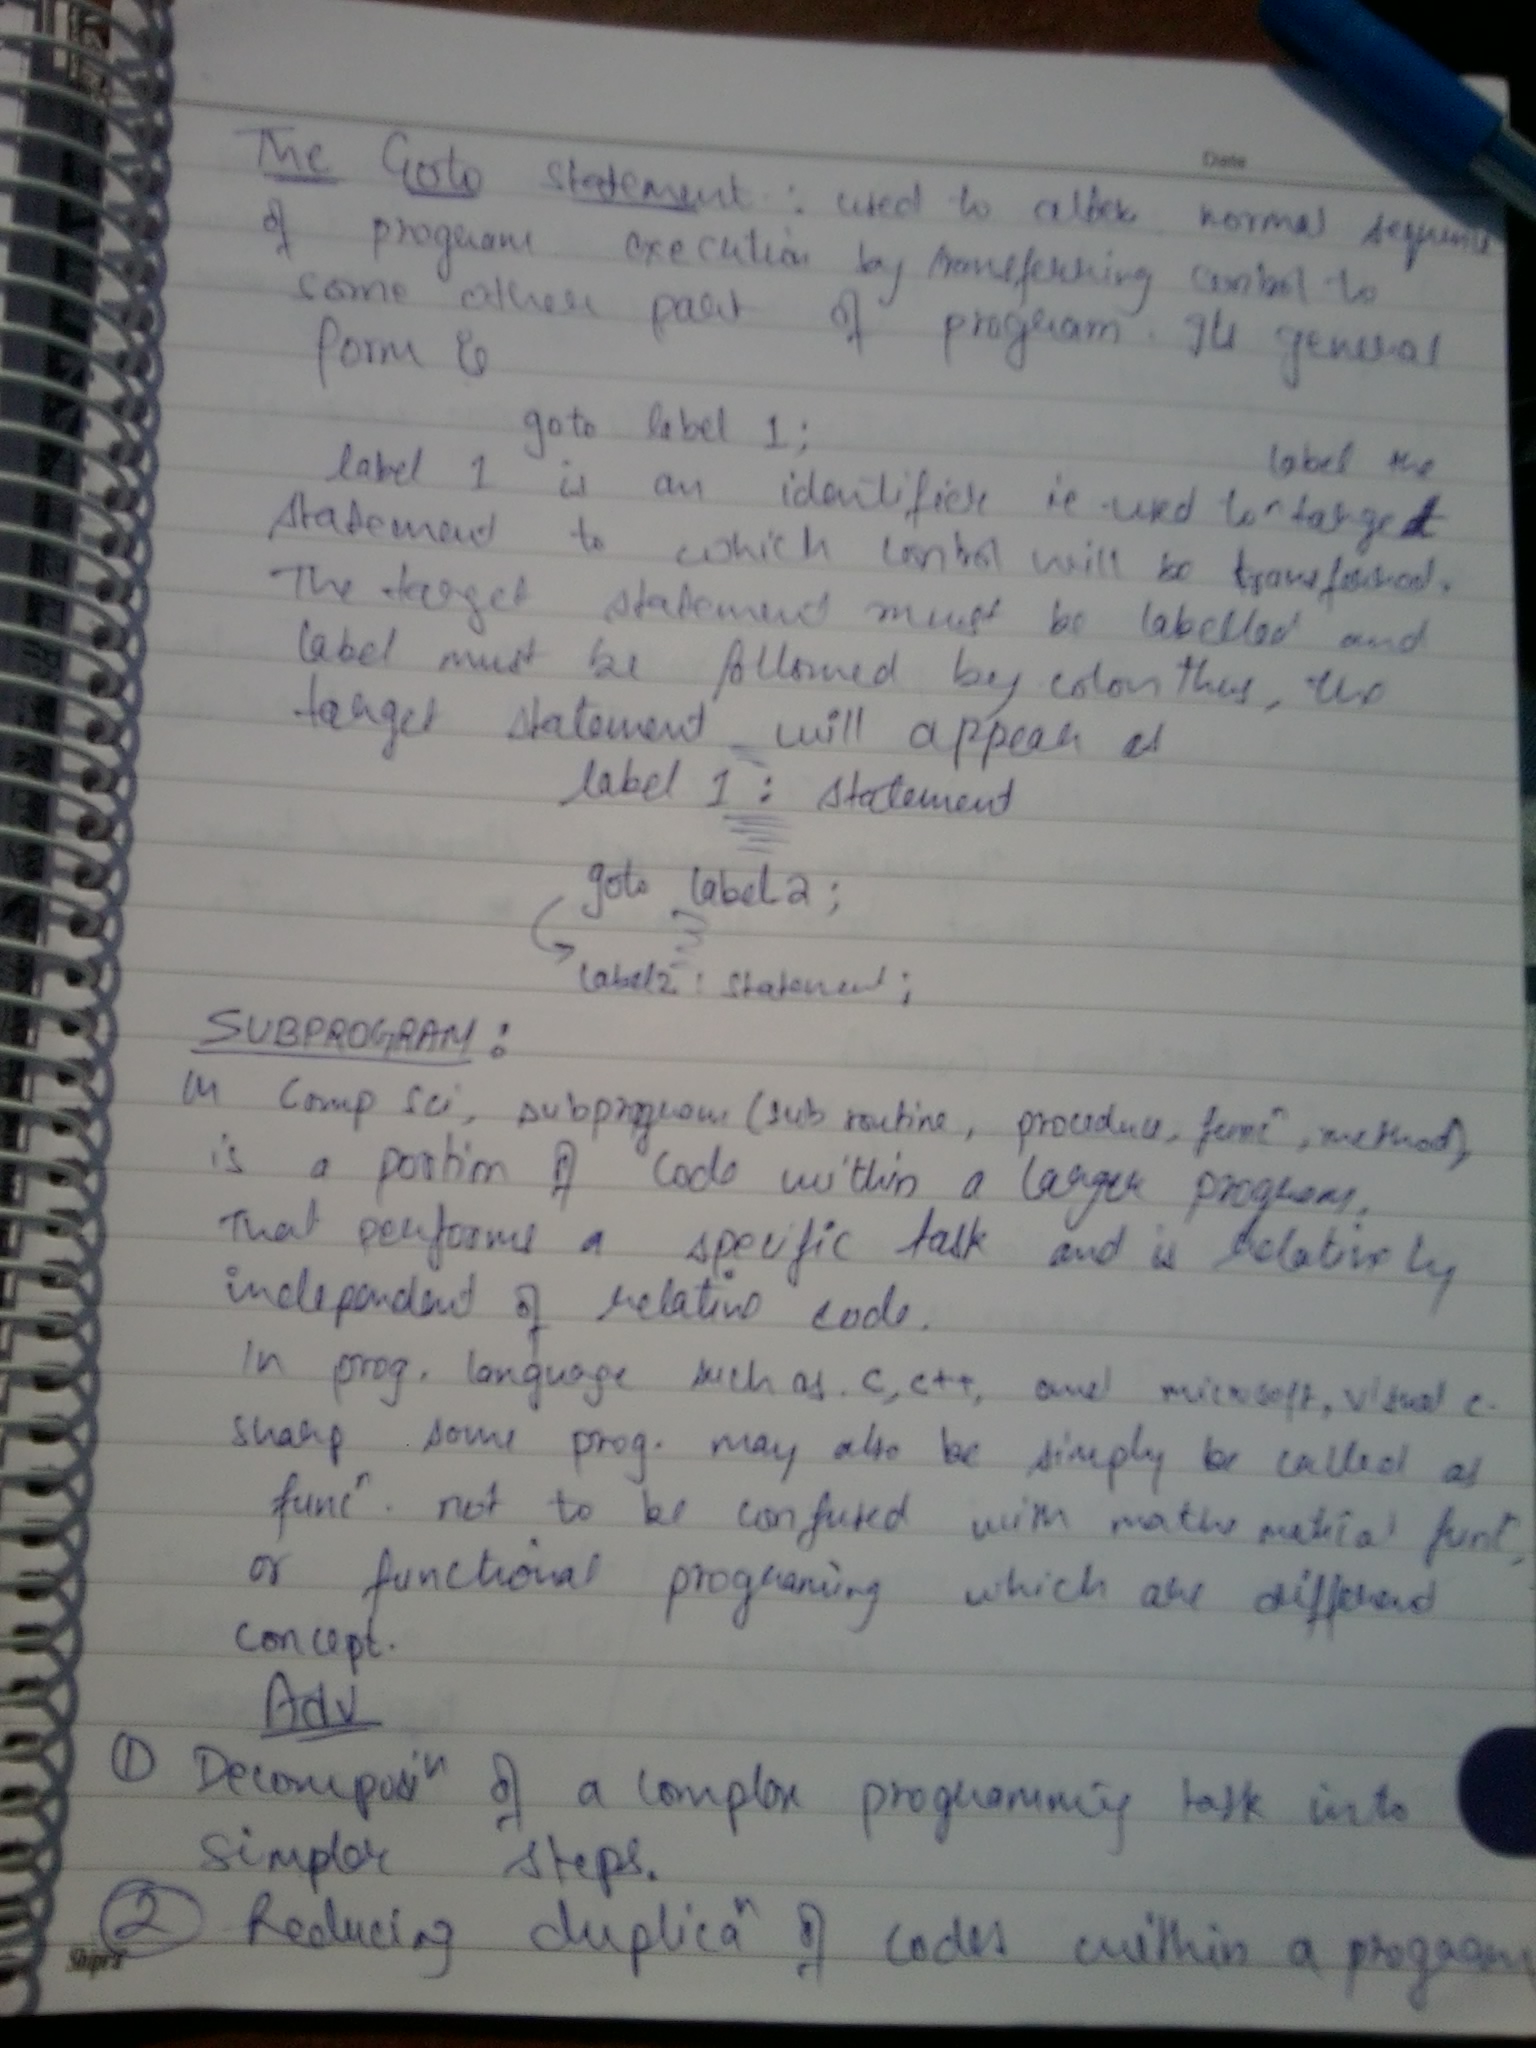 Date
The Goto statement : used to alter normal sequence
of program execution by transferring control to
some other part of program. Its general
form is
goto label 1;
label 1 is an identifier ie used to label the target
statement to which control will be transferred.
The target statement must be labelled and
label must be followed by colon thus, the
target statement will appear as
label 1 : statement
goto label 2;
label2 : statement;
SUBPROGRAM :
In Comp Sci, subprogram (sub routine, procedure, funcⁿ, method)
is a portion of code within a larger program,
That performs a specific task and is relatively
independent of relative code.
In prog. language such as C, C++, and microsoft, visual c-
sharp some prog. may also be simply be called as
funcⁿ. not to be confused with mathematical funcⁿ,
or functional programing which are different
concept.
Adv
① Decomposiⁿ of a complex programming task into
simpler steps.
② Reducing duplicaⁿ of codes within a program
Shipra